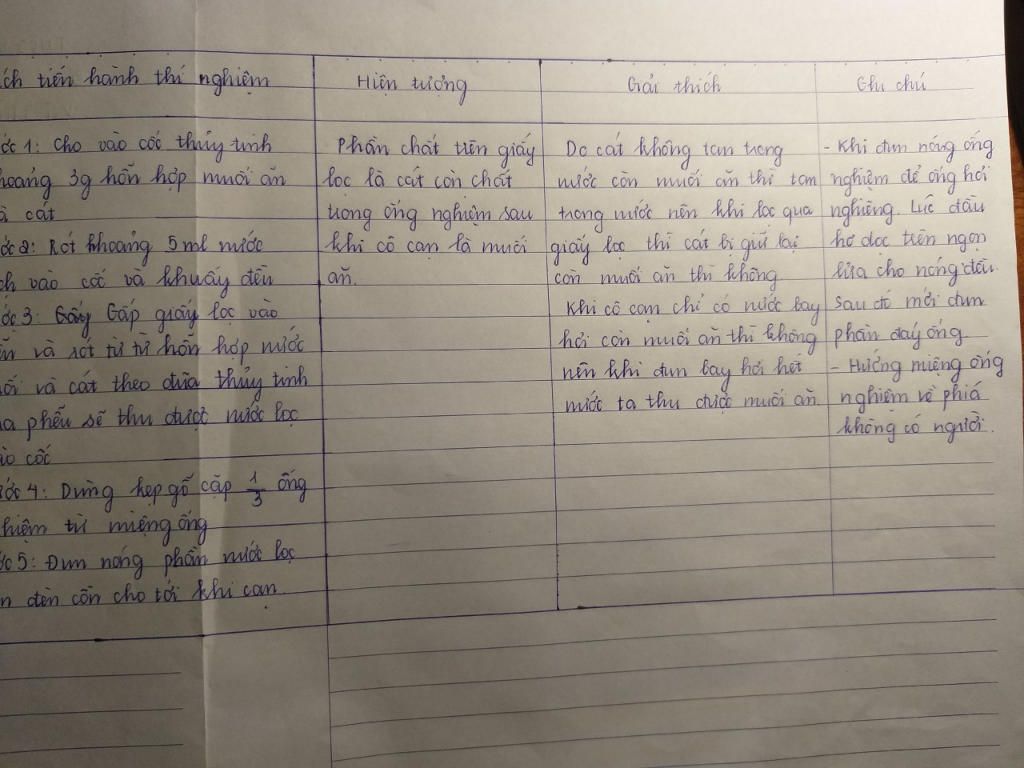 ích tiến hành thí nghiệm
Hiện tượng
Giải thích
Ghi chú
ớc 1: Cho vào cốc thủy tinh
hoảng 3g hỗn hợp muối ăn
à cát
ớc 2: Rót khoảng 5 ml nước
ch vào cốc và khuấy đều
ớc 3: Gấp giấy lọc vào
và rót từ từ hỗn hợp nước
ối và cát theo đũa thủy tinh
a phễu sẽ thu được nước lọc
ào cốc
ớc 4: Dùng kẹp gỗ cặp 1/3 ống
hiệm từ miệng ống
ớc 5: Đun nóng phần nước lọc
n đèn cồn cho tới khi cạn
Phần chất trên giấy
lọc là cát còn chất
trong ống nghiệm sau
khi cô cạn là muối
ăn.
Do cát không tan trong
nước còn muối ăn thì tan
trong nước nên khi lọc qua
giấy lọc thì cát bị giữ lại
còn muối ăn thì không
Khi cô cạn chỉ có nước bay
hơi còn muối ăn thì không
nên khi đun bay hơi hết
nước ta thu được muối ăn
- Khi đun nóng ống
nghiệm để ống hơi
nghiêng. Lúc đầu
hơ dọc trên ngọn
lửa cho nóng đều
sau đó mới đun
phần đáy ống
- Hướng miệng ống
nghiệm về phía
không có người.